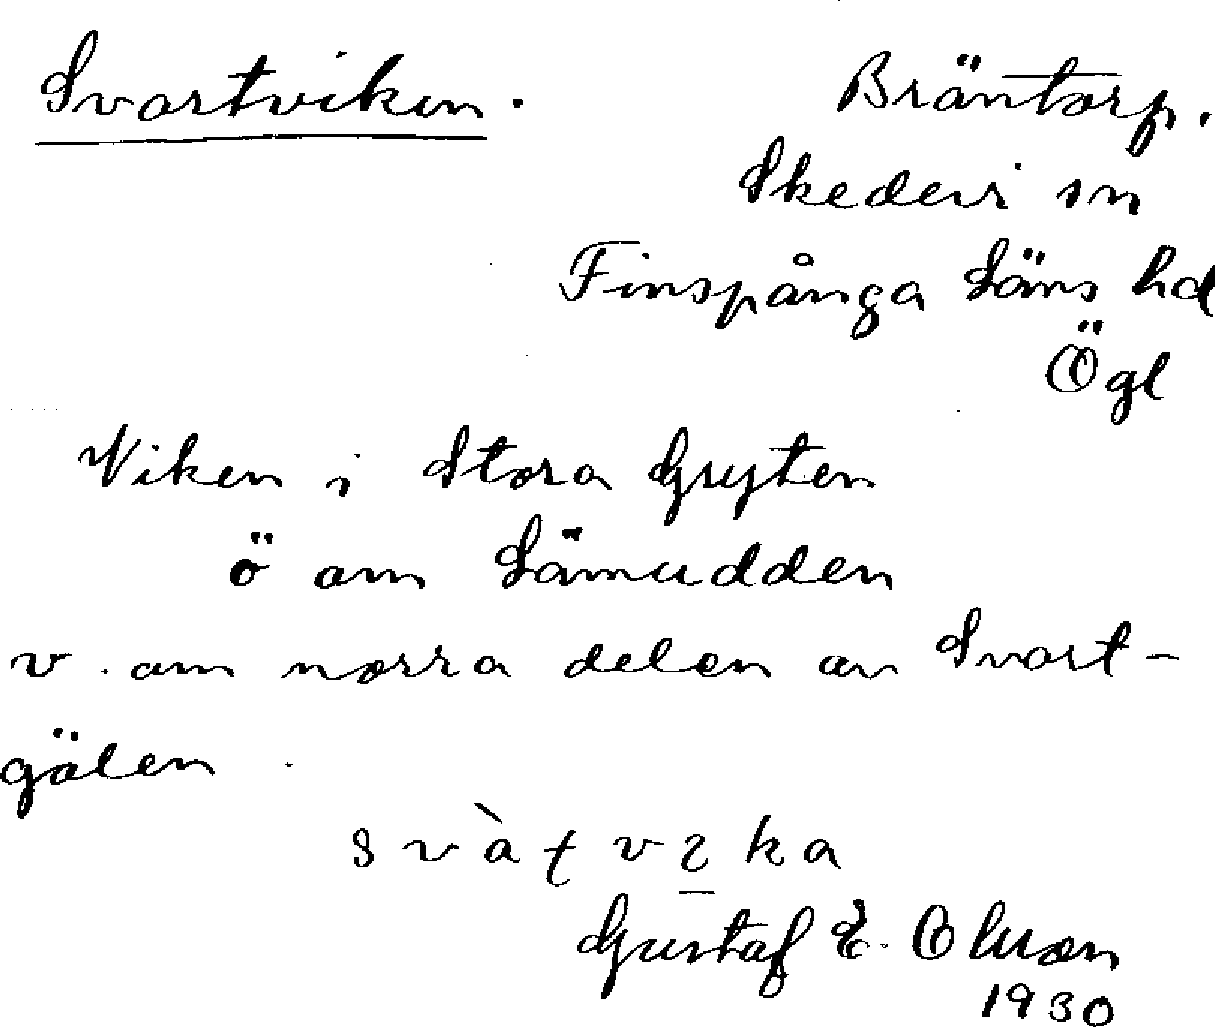 Svartviken.
Bräntorp.
Skedevi sn
Finspånga Läns hd
Ögl
Viken i Stora Gryten
ö om
v. om norra delen av Svart-
gölen.
Gustaf E. Olsson
1930